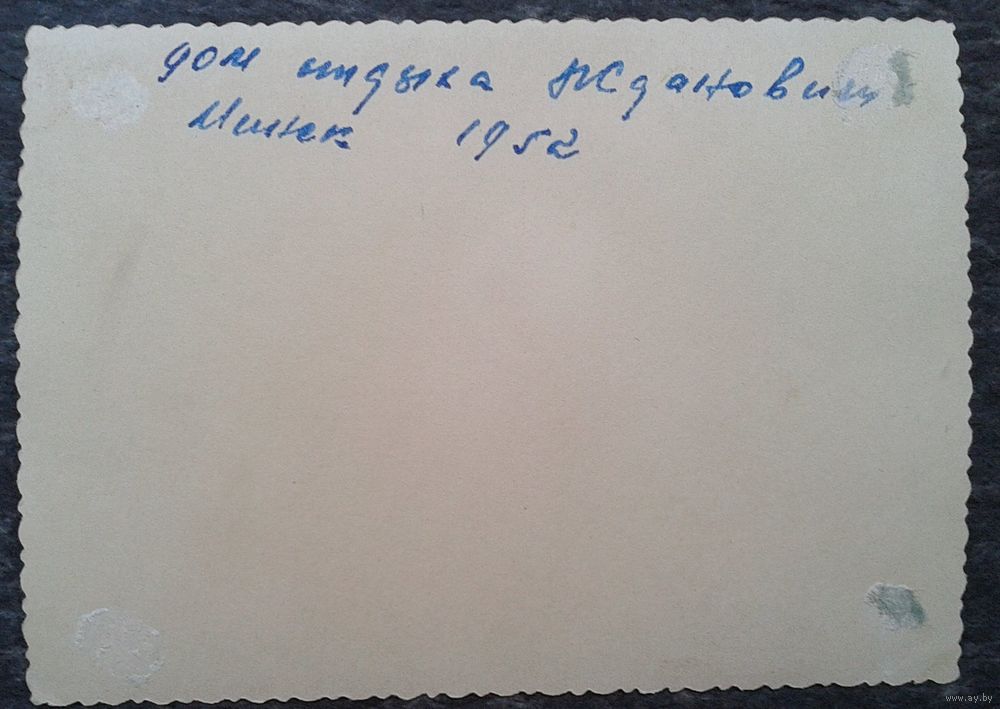 дом отдыха Ждановичи
Минск 1952
www.ay.by